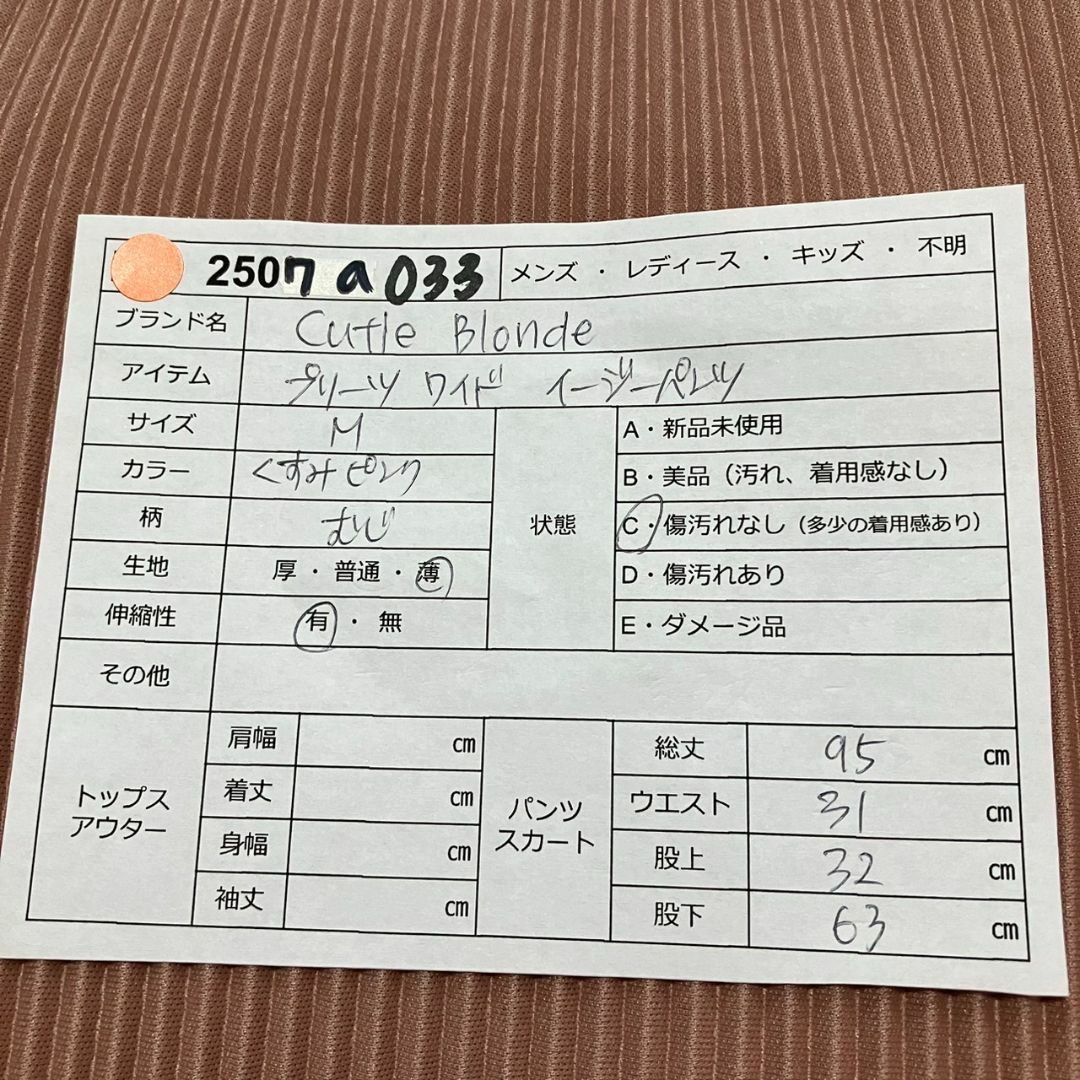 2507a033 メンズ ・ レディース ・ キッズ ・ 不明
ブランド名 Cutie Blonde
アイテム プリーツ ワイド イージーパンツ
サイズ M
カラー くすみピンク
柄 むじ
生地 厚・普通・薄
伸縮性 有・無
状態
A・新品未使用
B・美品（汚れ、着用感なし）
C・傷汚れなし（多少の着用感あり）
D・傷汚れあり
E・ダメージ品
その他
トップス
アウター
肩幅 cm
着丈 cm
身幅 cm
袖丈 cm
パンツ
スカート
総丈 95 cm
ウエスト 31 cm
股上 32 cm
股下 63 cm